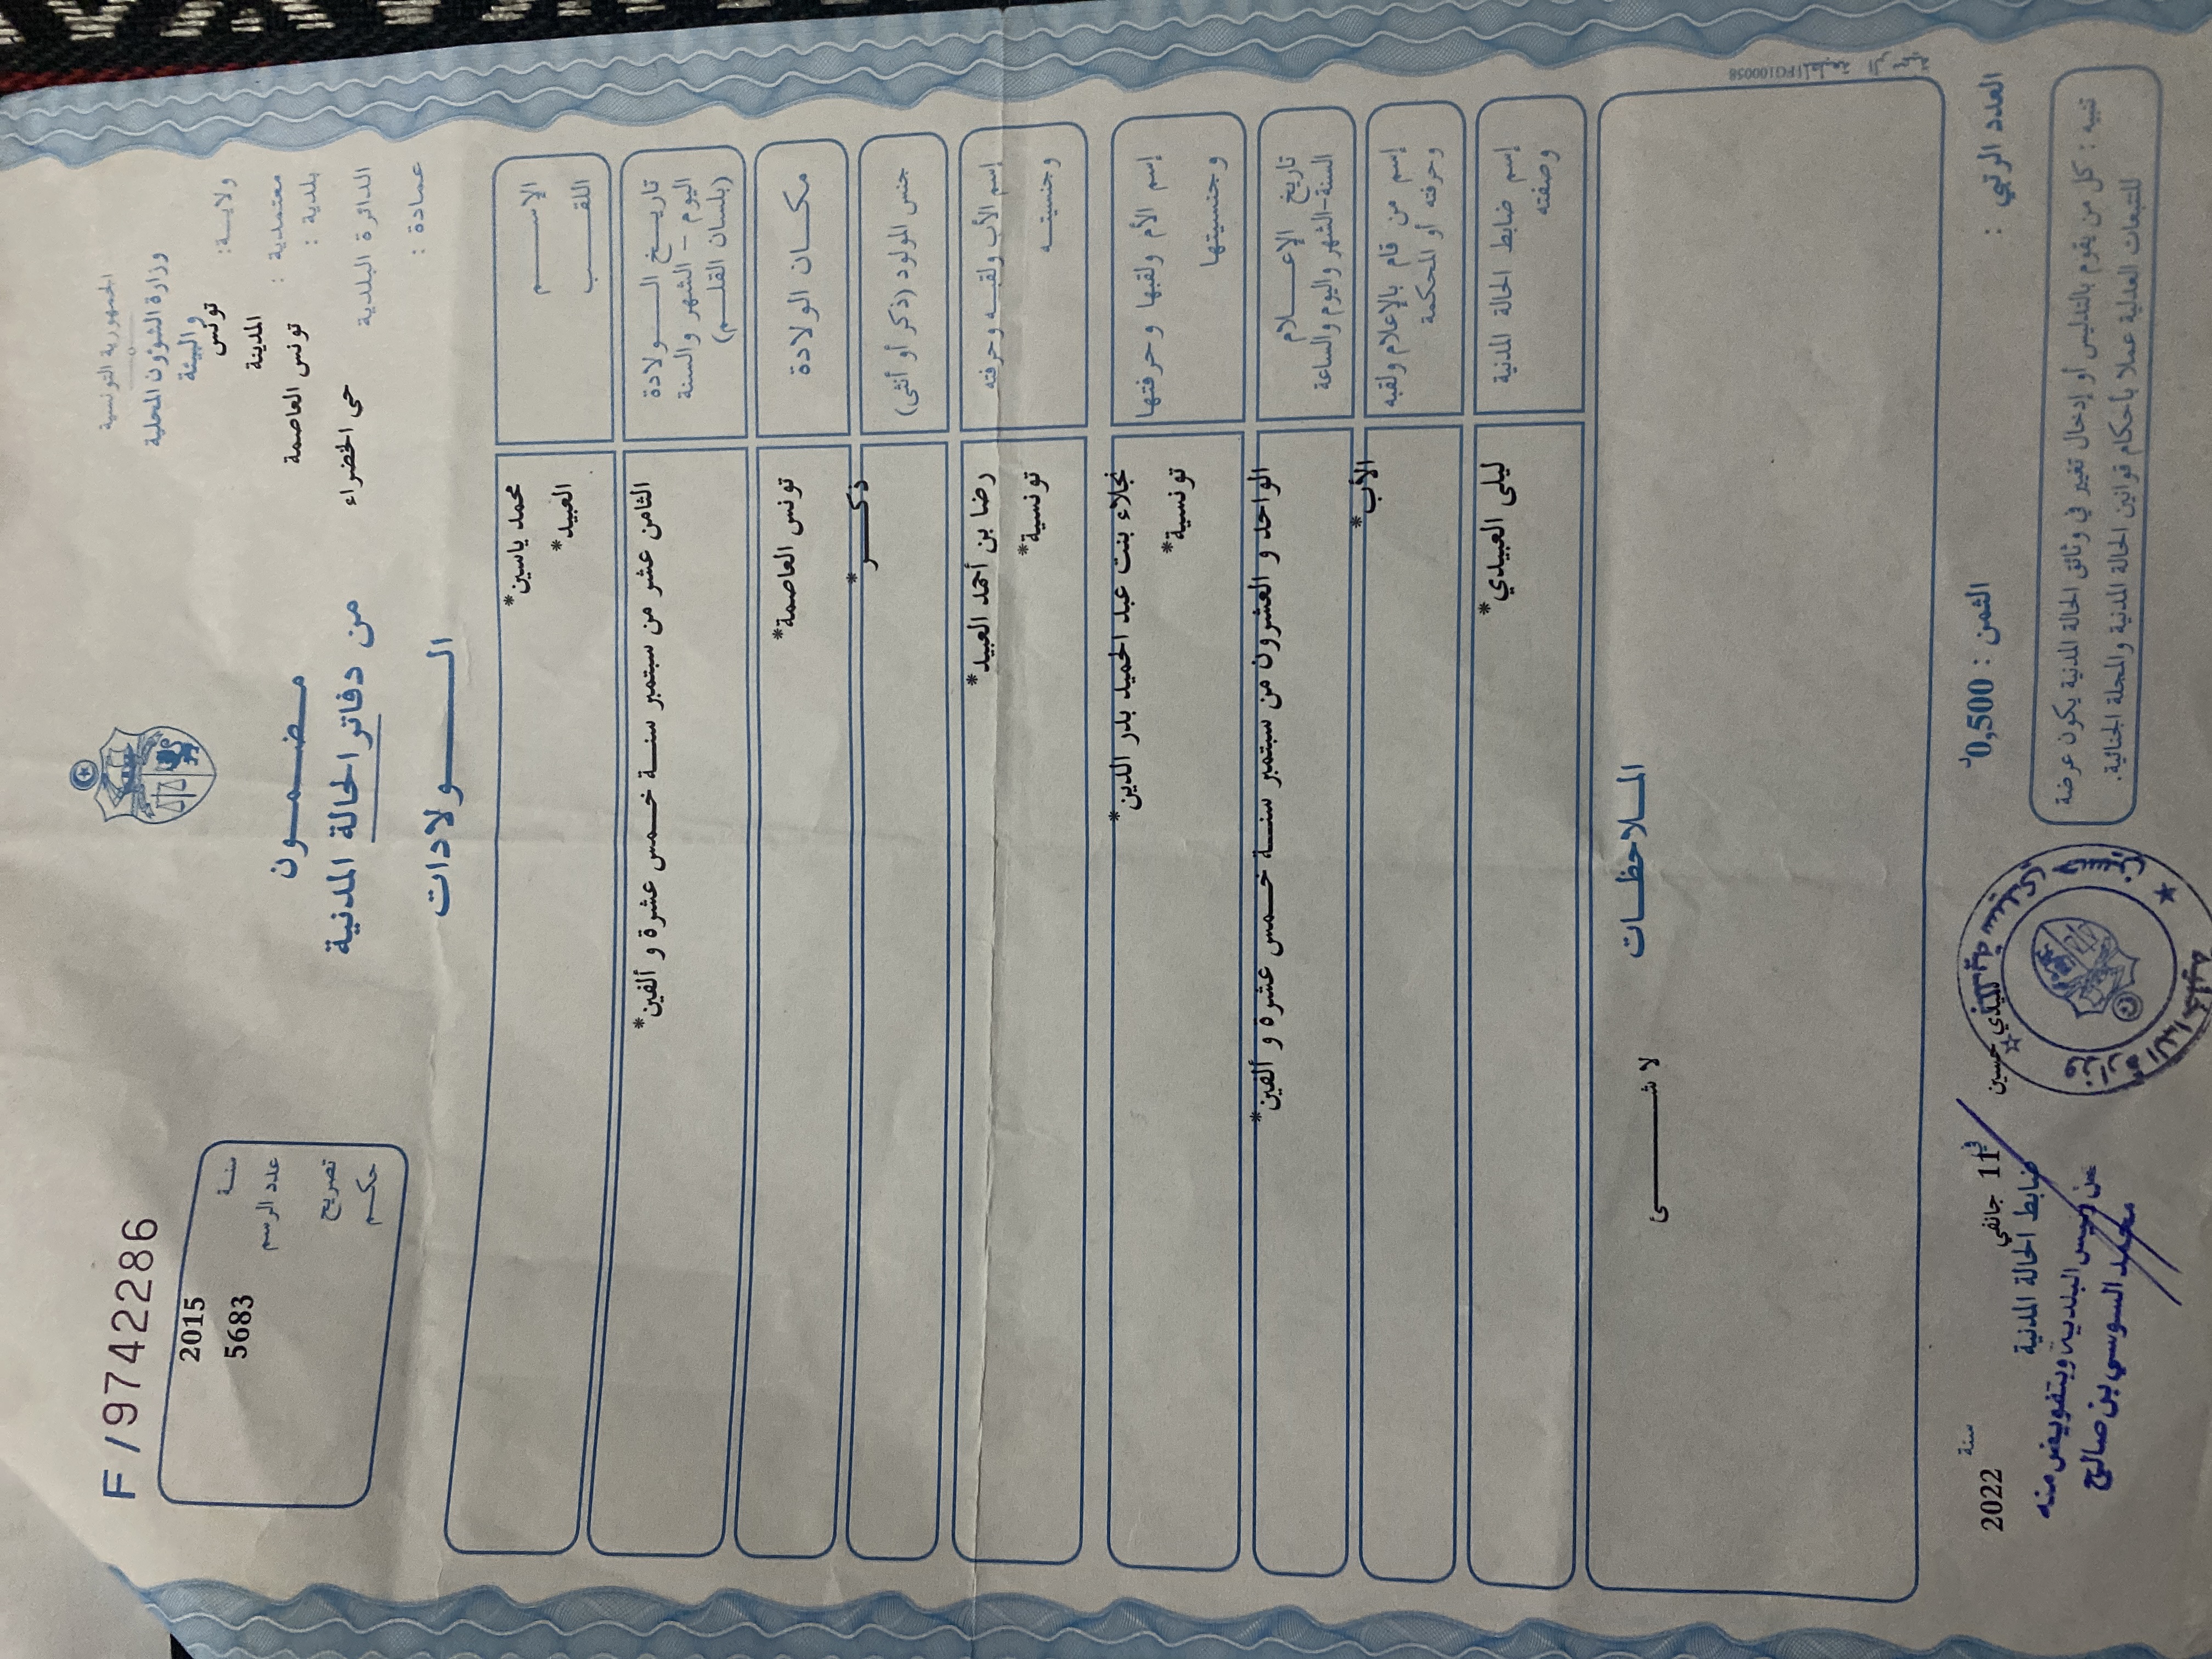 الجمهورية التونسية
وزارة الشؤون المحلية
والبيئة
ولاية: تونس
معتمدية : المدينة
بلدية : تونس العاصمة
الدائرة البلدية حى الخضراء
عمادة :
مضمون
من دفاتر الحالة المدنية
الولادات
F/9742286
سنة 2015
عدد الرسم 5683
تصريح
حكم
الإسم محمد ياسين*
اللقب العبيد*
تاريخ الولادة
اليوم - الشهر والسنة
(بلسان القلم)
الثامن عشر من سبتمبر سنة خمس عشرة و ألفين*
مكان الولادة تونس العاصمة*
جنس المولود (ذكر أو أنثى) ذكر*
إسم الأب ولقبه وحرفته رضا بن أحمد العبيد*
وجنسيته تونسية*
إسم الأم ولقبها وحرفتها نجلاء بنت عبد الحميد بدر الدين*
وجنسيتها تونسية*
تاريخ الإعلام
السنة-الشهر واليوم والساعة
الواحد و العشرون من سبتمبر سنة خمس عشرة و ألفين*
إسم من قام بالإعلام ولقبه
وحرفته أو المحكمة
الأب*
إسم ضابط الحالة المدنية
وصفته
ليلى العبيدي*
الملاحظات
لا شئ
العدد الرتبي :
الثمن : 0,500د
سيدي حسين في 11 جانفي سنة 2022
ضابط الحالة المدنية
عن رئيس البلدية وبتفويض منه
محمد السوسي بن صالح
تنبيه : كل من يقوم بالتدليس أو إدخال تغيير في وثائق الحالة المدنية يكون عرضة
للتبعات العدلية عملا بأحكام قوانين الحالة المدنية والمجلة الجنائية.